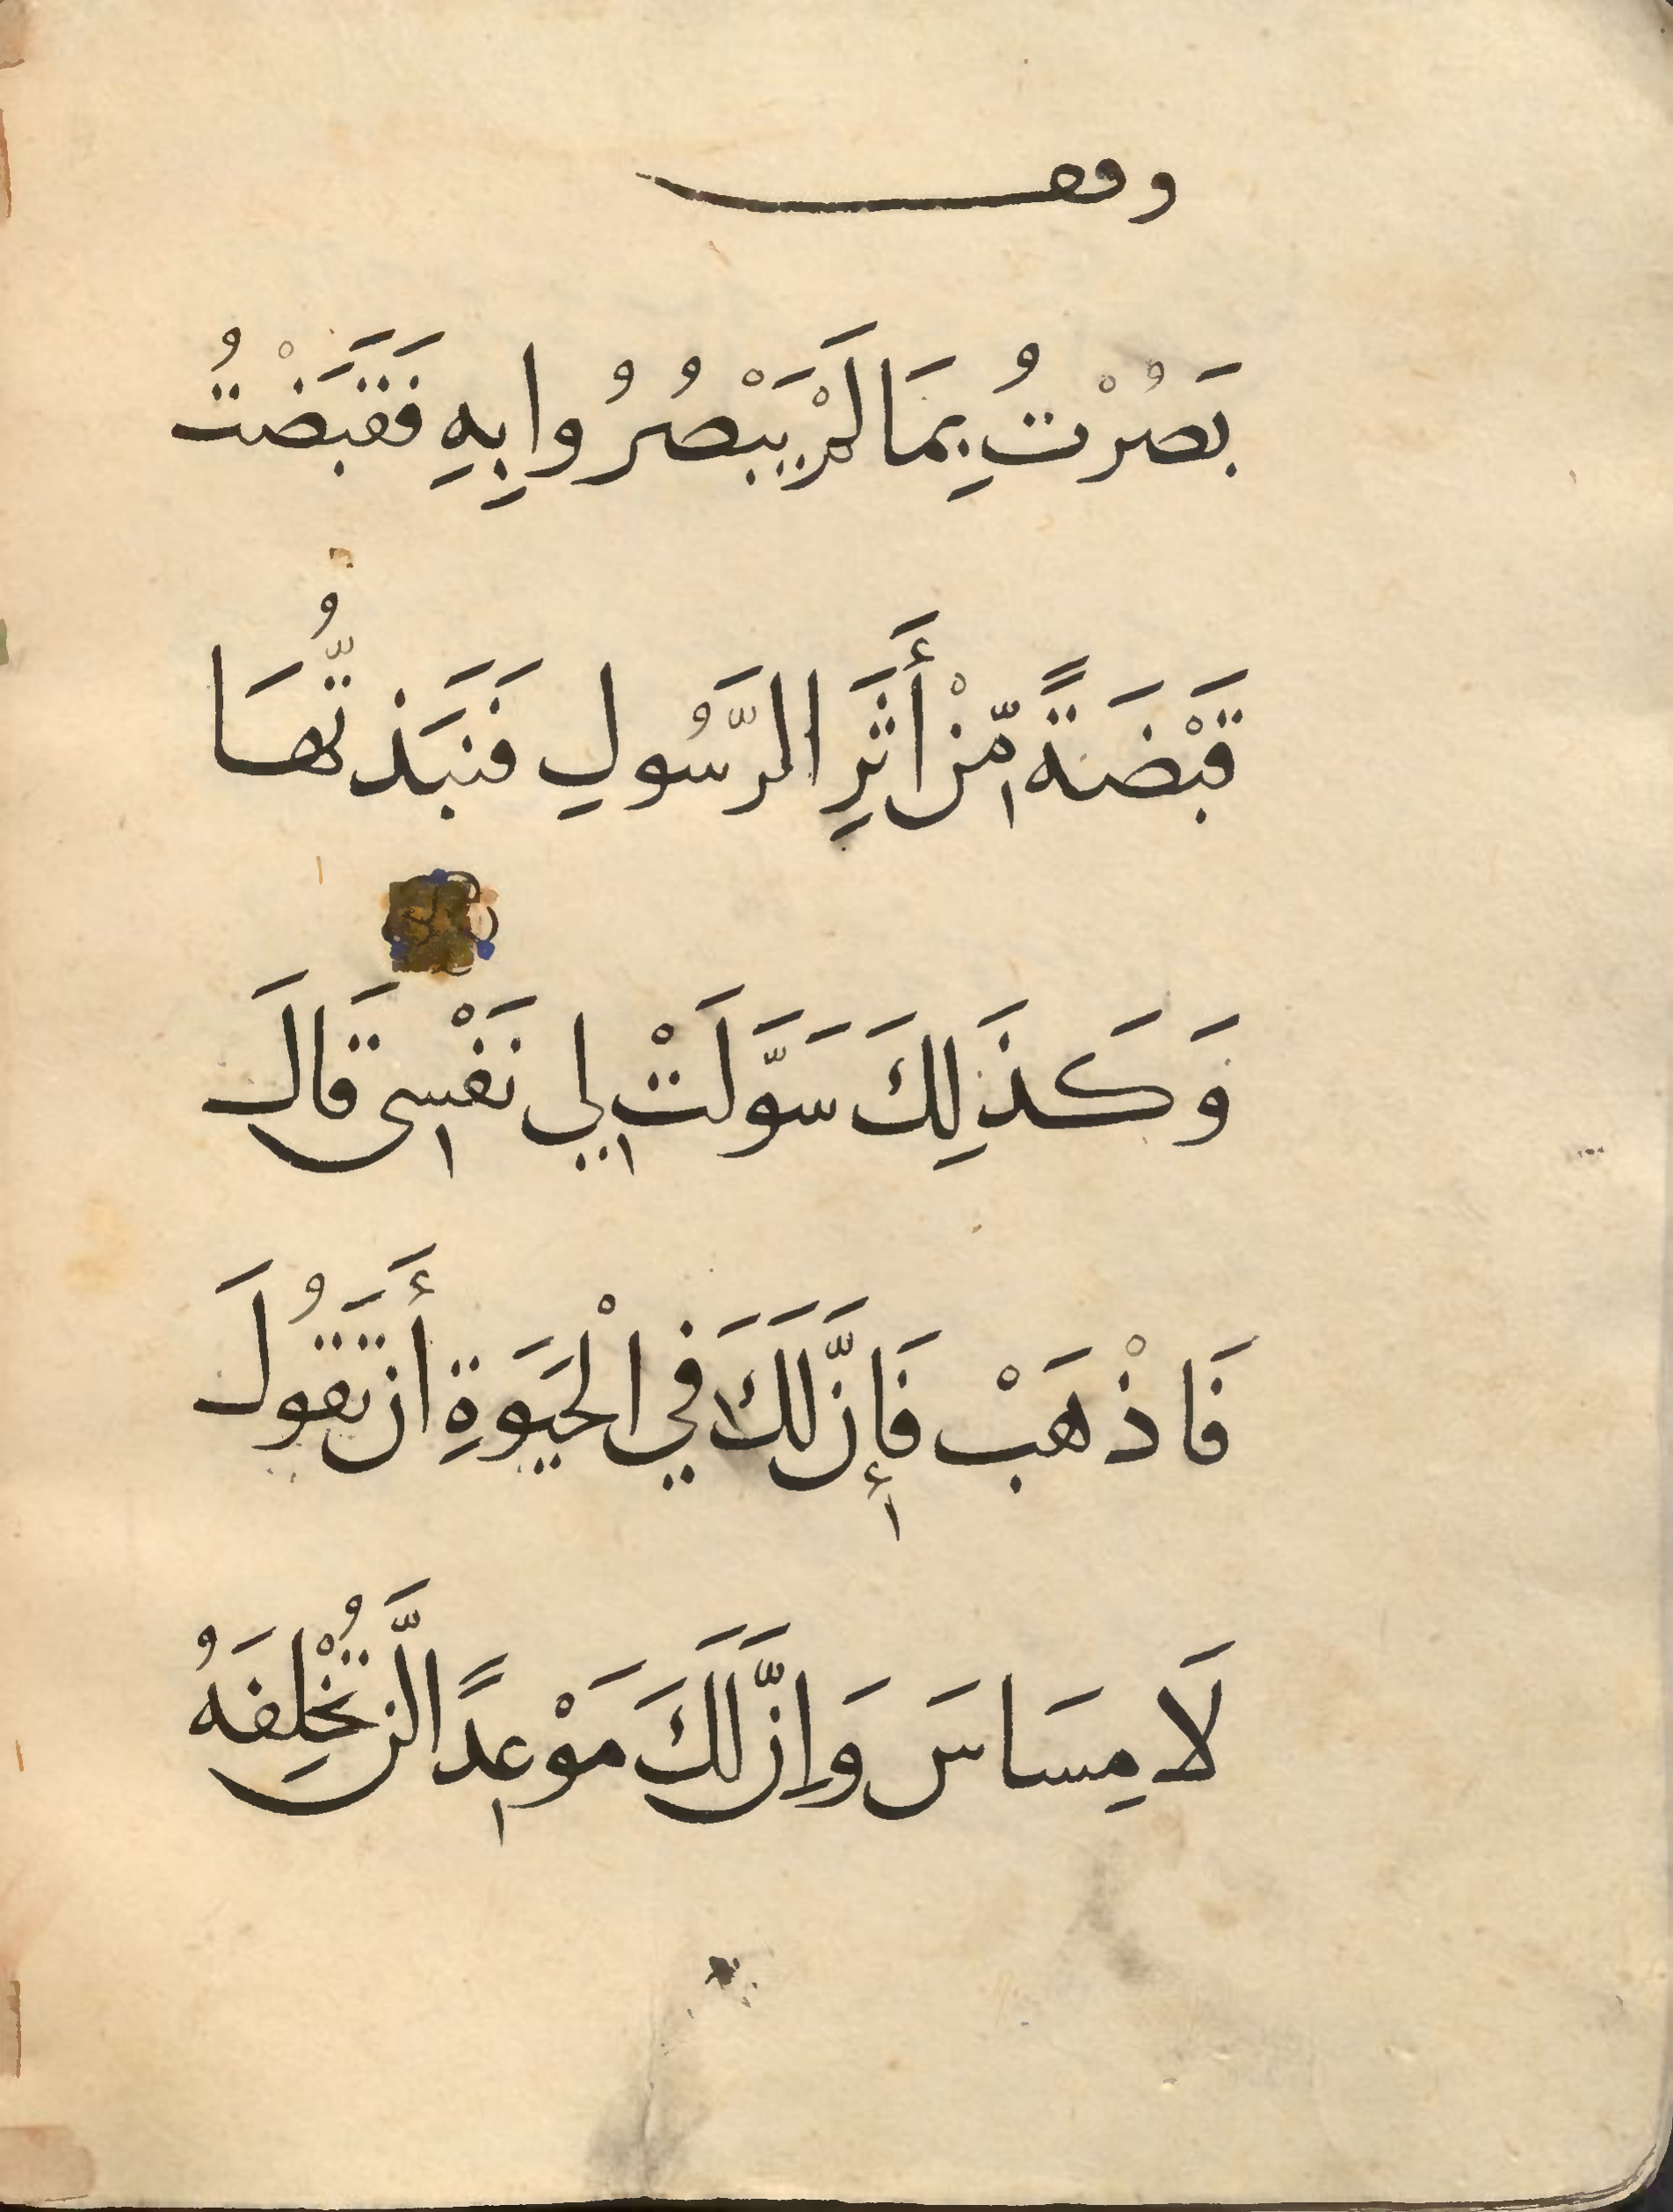 وقف
بَصُرْتُ بِمَا لَمْ يَبْصُرُوا بِهِ فَقَبَضْتُ
قَبْضَةً مِّنْ أَثَرِ الرَّسُولِ فَنَبَذتُّهَا
وَكَذَلِكَ سَوَّلَتْ لِي نَفْسِي قَالَ
فَاذْهَبْ فَإِنَّ لَكَ فِي الْحَيَوةِ أَن تَقُولَ
لَا مِسَاسَ وَإِنَّ لَكَ مَوْعِدًا لَّن تُخْلِفَهُ